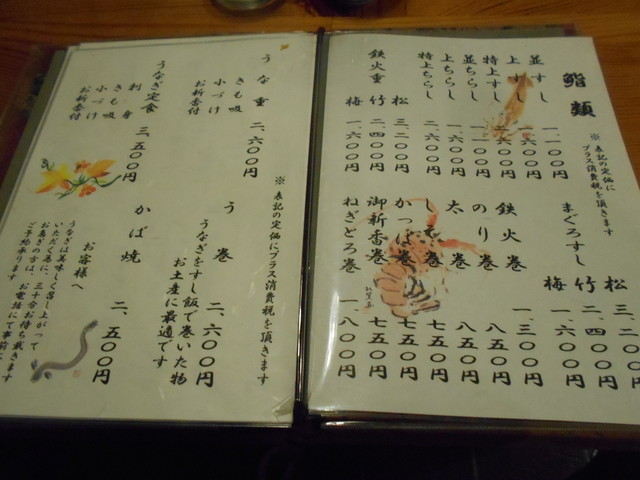 鮨類
※表記の定価に
プラス消費税を頂きます
並すし 一、一〇〇円
上すし 一、六〇〇円
特上すし 二、六〇〇円
並ちらし 一、一〇〇円
上ちらし 一、六〇〇円
特上ちらし 二、六〇〇円
鉄火重 松 三、二〇〇円
竹 二、四〇〇円
梅 一、六〇〇円
まぐろすし 松 三、二〇〇円
竹 二、四〇〇円
梅 一、六〇〇円
鉄火巻 一、三〇〇円
のり巻 八五〇円
太巻 八五〇円
しそ巻 七五〇円
かっぱ巻 七五〇円
御新香巻 七五〇円
ねぎとろ巻 一、八〇〇円
※表記の定価にプラス消費税を頂きます
うな重 二、六〇〇円
きも吸
小づけ
お新香付
うなぎ定食 三、五〇〇円
刺身
きも吸
小づけ
お新香付
う巻 二、六〇〇円
うなぎをすし飯で巻いた物
お土産に最適です
かば焼 二、五〇〇円
お客様へ
うなぎは美味しく召し上がって
いただく為に、三十分お待ち戴きます
お急ぎの方は、お電話にて事前に
ご予約承ります